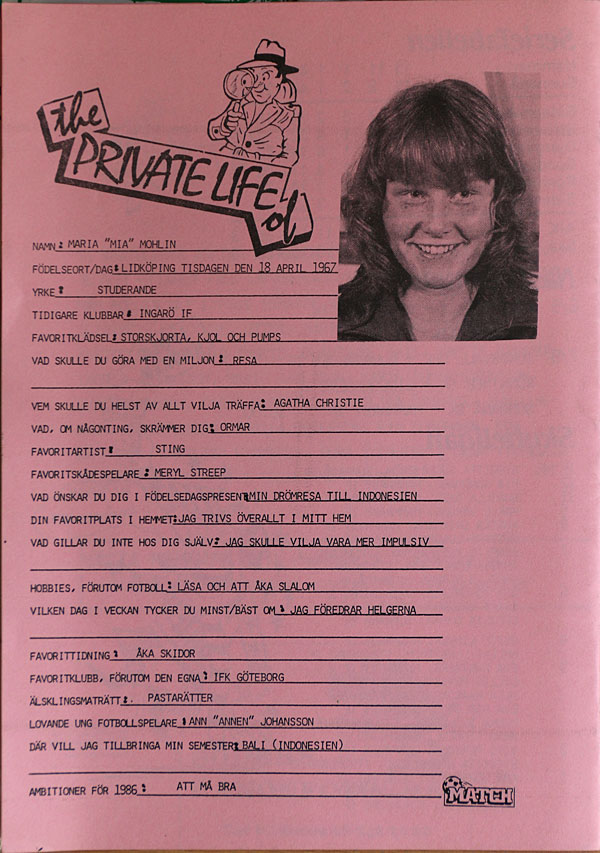 the
PRIVATE LIFE
of
NAMN: MARIA "MIA" MOHLIN
FÖDELSEORT/DAG: LIDKÖPING TISDAGEN DEN 18 APRIL 1967
YRKE: STUDERANDE
TIDIGARE KLUBBAR: INGARÖ IF
FAVORITKLÄDSEL: STORSKJORTA, KJOL OCH PUMPS
VAD SKULLE DU GÖRA MED EN MILJON: RESA
VEM SKULLE DU HELST AV ALLT VILJA TRÄFFA: AGATHA CHRISTIE
VAD, OM NÅGONTING, SKRÄMMER DIG: ORMAR
FAVORITARTIST: STING
FAVORITSKÅDESPELARE: MERYL STREEP
VAD ÖNSKAR DU DIG I FÖDELSEDAGSPRESENT: MIN DRÖMRESA TILL INDONESIEN
DIN FAVORITPLATS I HEMMET: JAG TRIVS ÖVERALLT I MITT HEM
VAD GILLAR DU INTE HOS DIG SJÄLV: JAG SKULLE VILJA VARA MER IMPULSIV
HOBBIES, FÖRUTOM FOTBOLL: LÄSA OCH ATT ÅKA SLALOM
VILKEN DAG I VECKAN TYCKER DU MINST/BÄST OM: JAG FÖREDRAR HELGERNA
FAVORITTIDNING: ÅKA SKIDOR
FAVORITKLUBB, FÖRUTOM DEN EGNA: IFK GÖTEBORG
ÄLSKLINGSMATRÄTT: PASTARÄTTER
LOVANDE UNG FOTBOLLSPELARE: ANN "ANNEN" JOHANSSON
DÄR VILL JAG TILLBRINGA MIN SEMESTER: BALI (INDONESIEN)
AMBITIONER FÖR 1986: ATT MÅ BRA
MATCH